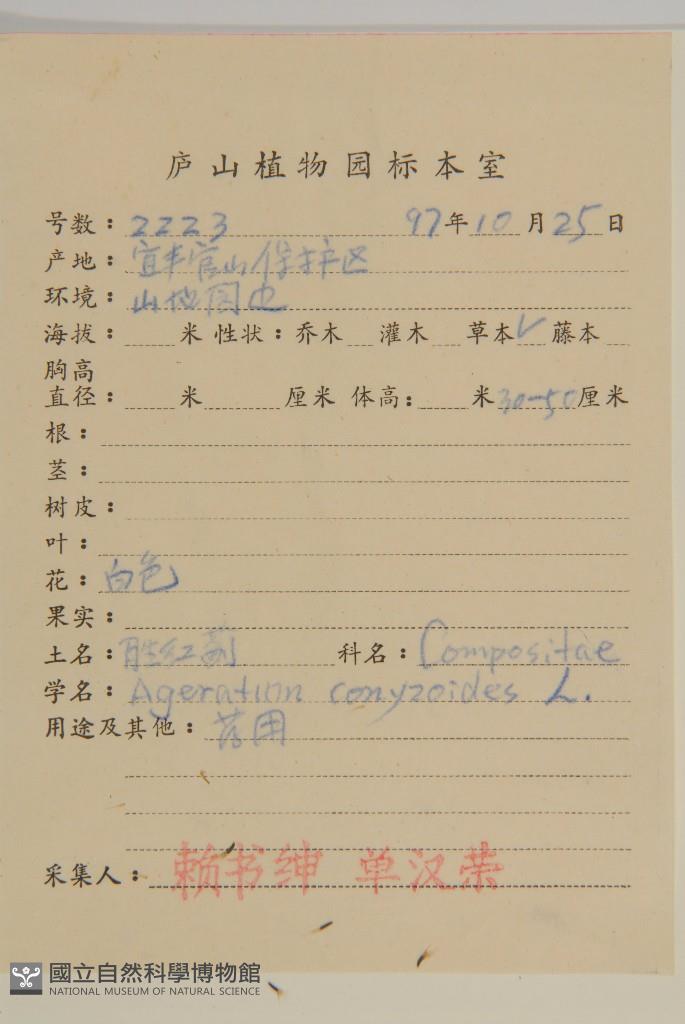 庐山植物园标本室
号数：2223 97年10月25日
产地：宜丰官山保护区
环境：山地园边
海拔： 米 性状：乔木 灌木 草本✓ 藤本
胸高
直径： 米 厘米 体高： 米30-50厘米
根：
茎：
树皮：
叶：
花：白色
果实：
土名：胜红蓟 科名：Compositae
学名：Ageratum conyzoides L.
用途及其他：药用
采集人：赖书绅 单汉荣
國立自然科學博物館
NATIONAL MUSEUM OF NATURAL SCIENCE